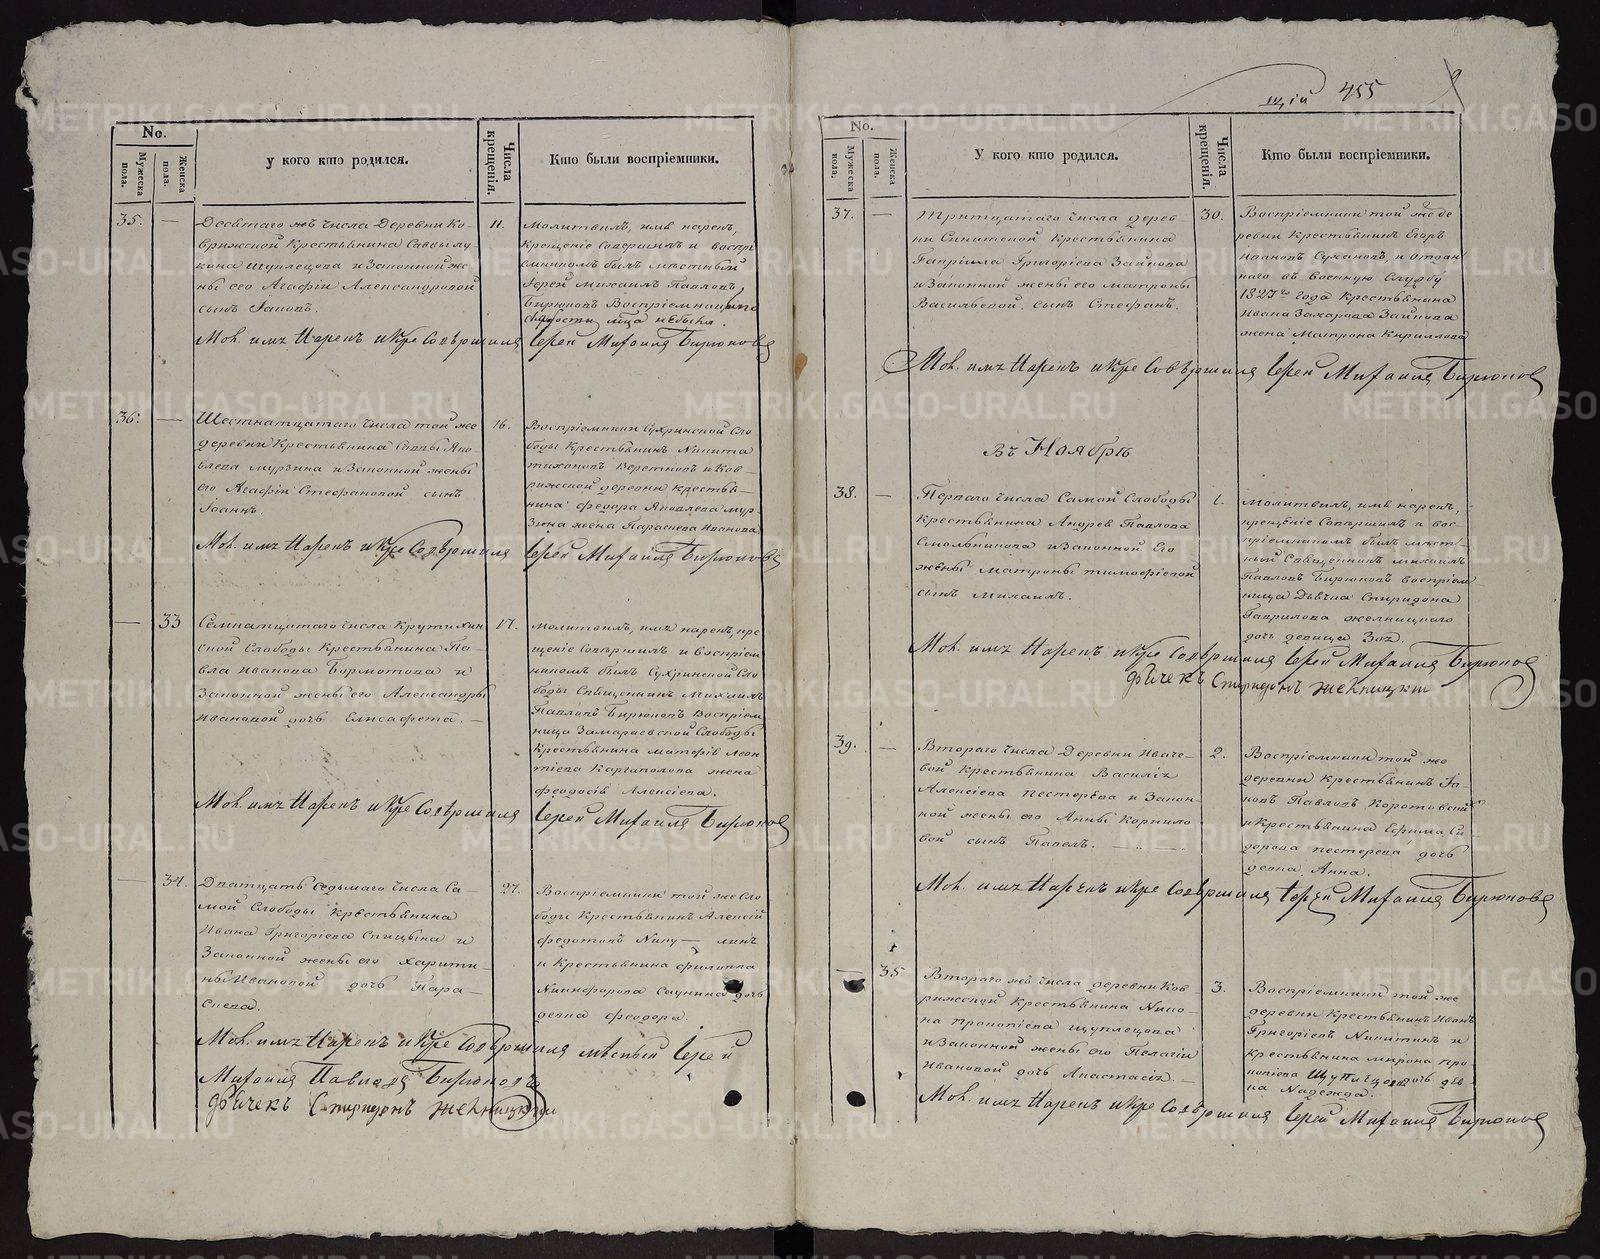 щій 455
No.
Мужеска пола.
Женска пола.
У кого кто родился.
Числа крещенія.
Кто были воспріемники.
35. —
Десѣтаго жъ числа Деревни Ко-
врижской Крестьѣнина Саввы лу-
кина Щуплецова и Законной же-
ны его Агафіи Александровой
сынъ Іаковъ.
11.
Молитвилъ, имѣ нарекъ,
Крещеніе Совершилъ и воспрі
емникомъ былъ мѣстный
Іерей Михаилъ Павловъ
Бирюковъ Воспріемницы по
слабости лица небыла.
Мол. имъ Нарекъ и Кре Совѣршилъ Іерей Михаилъ Бирюковъ
36. —
Шестнатцатаго числа той же
деревни Крестьѣнина Саввы Яко-
влева Мурзина и Законной жены
его Агафіи Стефановой сынъ
Іоаннъ.
16.
Воспріемники Сухринской Сло
боды Крестьѣнинъ Никита
тихоновъ Веретновъ и Ков-
рижской деревни крестьѣ-
нина федора Яковлева Мур-
зина жена Параскева Иванова
Мол. имъ Нарекъ и Кре Совѣршилъ Іерей Михаилъ Бирюковъ
— 33
Семнатцатаго числа Крутихин-
ской Слободы Крестьѣнина Па-
вла Иванова Бормотова и
Законной жены его Александры
Ивановой дочь Елисафета. —
17.
Молитвилъ, имъ нарекъ, кре
щеніе Совершилъ и воспріем
никомъ былъ Сухринской Сло
боды Свѣщенникъ Михаилъ
Павловъ Бирюковъ Воспріем-
ница Замараевской Слободы
Крестьѣнина Матфіѣ Леон
тіева Каргаполова жена
феодосіѣ Алексіева.
Мол. имъ Нарекъ и Кре Совѣршилъ Іерей Михаилъ Бирюковъ
— 34.
Дватцать седьмаго числа Са-
мой Слободы крестьѣнина
Ивана Григоріева Спицына и
Законной жены его Харити-
ны Ивановой дочь Пара-
скева.
27.
Воспріемники той же Сло
боды Крестьѣнинъ Алексѣй
федотовъ Нику — линъ
и Крестьѣнина филиппа
Никифорова Саунина дочь
девка феодора.
Мол. имъ Нарекъ и Кре Совѣршилъ мѣсный Іерей
Михаилъ Павловъ Бирюковъ
Дьячекъ Спиридонъ Желницкій
No.
Мужеска пола.
Женска пола.
У кого кто родился.
Числа крещенія.
Кто были воспріемники.
37. —
Тритцатаго числа дерев
ни Синитской Крестьѣнина
Гавріила Григоріева Заикова
и Законной жены его матроны
Васильевой сынъ Стефанъ.
30.
Воспріемники той же де
ревни Крестьѣнинъ Егоръ
Ивановъ Сухановъ, и Отдан
наго въ военную Службу
1827го года Крестьѣнина
Ивана Захарова Заикова
жена Матрона Кириллова
Мол. имъ Нарекъ и Кре Совѣршилъ Іерей Михаилъ Бирюковъ
Въ Ноябрѣ
38. —
Перваго числа Самой Слободы
Крестьѣнина Андрея Павлова
Смольникова и Законной Его
жены Матроны тимофіевой
сынъ Михаилъ.
1.
Молитвилъ, имѣ нарекъ,
крещеніе Совершилъ и вос-
пріемникомъ былъ мѣст-
ный Свѣщенникъ Михаилъ
Павловъ Бирюковъ воспріем
ница Дьѣчка Спиридона
Гаврилова желницкаго
дочь девица Зоѣ.
Мол. имъ Нарекъ и Кре Совѣршилъ Іерей Михаилъ Бирюковъ
Дьячекъ Спиридонъ Желницкій
39. —
Втораго числа Деревни Иваче-
вой Крестьѣнина Василіѣ
Алексіева Пестерева и Закон-
ной жены его Анны Корнило
вой сынъ Павелъ.
2.
Воспріемники той же
деревни Крестьѣнинъ Іа-
ковъ Павловъ Коротовских
и Крестьѣнина Ефима Си-
дорова Пестерева дочь
девка Анна.
Мол. имъ Нарекъ и Кре Совѣршилъ Іерей Михаилъ Бирюковъ
— 35
Втораго жъ числа деревни Ков
рижской Крестьѣнина Нико-
на Прокопіева щуплецова
и Законной жены его Пелагіи
Ивановой дочь Анастасіѣ. —
3.
Воспріемники той же
деревни Крестьѣнинъ Иванъ
Григоріевъ Никитинъ и
крестьѣнина Мирона про
копіева Щуплецова дочь дев
ка Надежда.
Мол. имъ Нарекъ и Кре Совѣршилъ Іерей Михаилъ Бирюковъ
METRIKI.GASO-URAL.RU